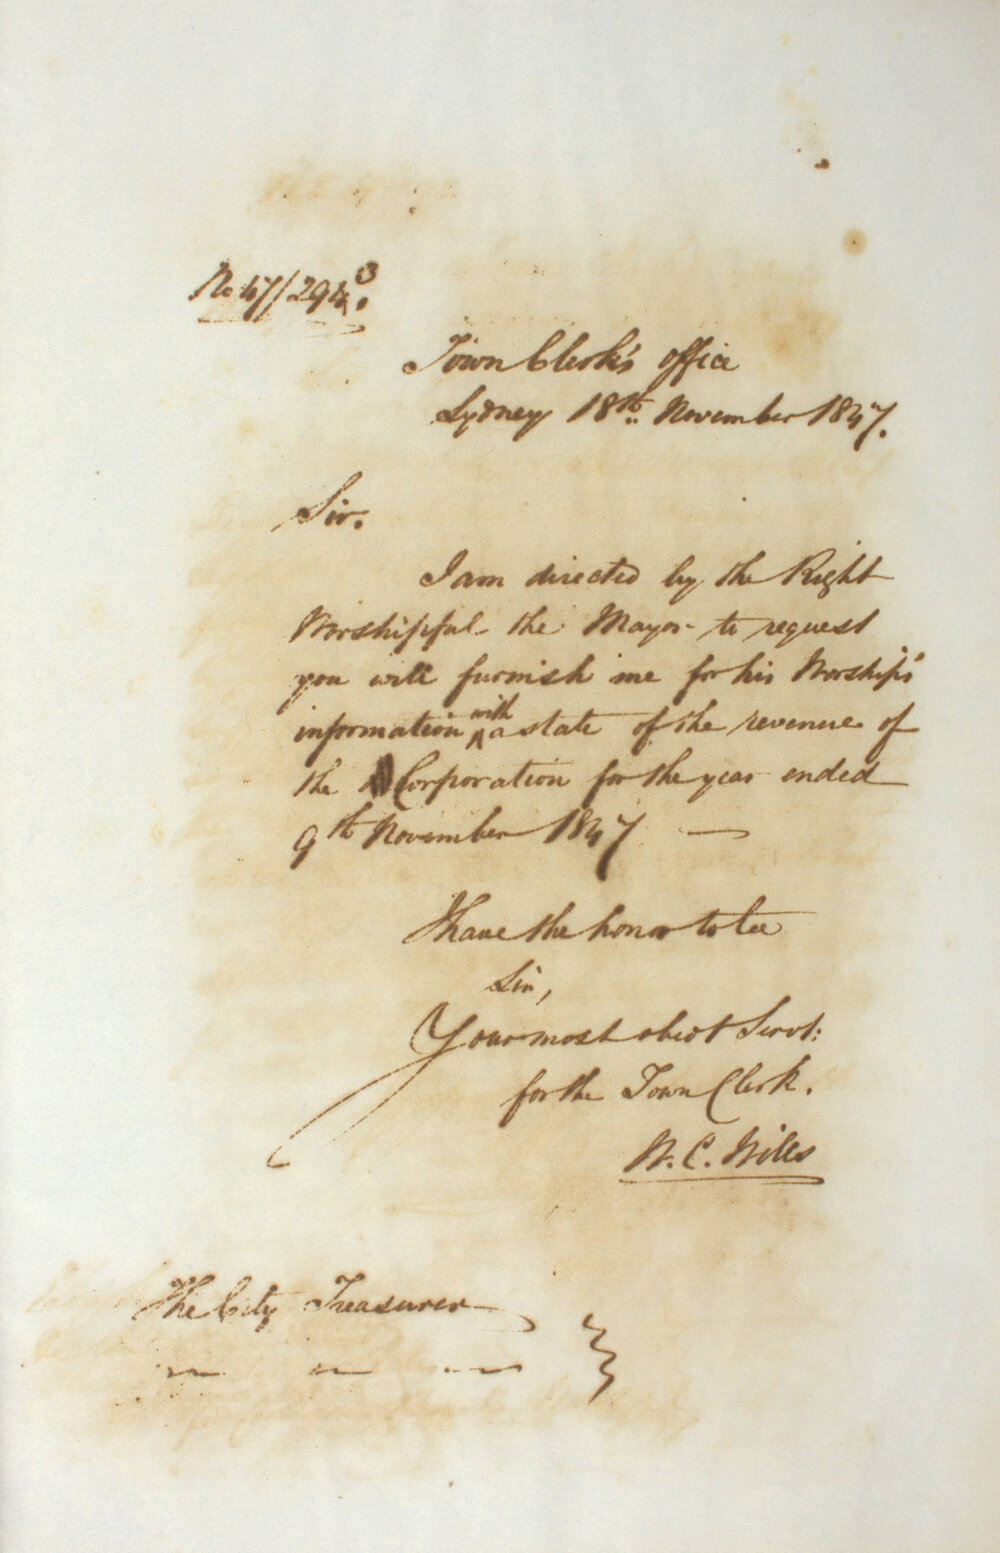 No 47/294 3.
Town Clerk's office
Sydney 18th. November 1847.
Sir.
I am directed by the Right
Worshipful the Mayor to request
you will furnish me for his Worship's
information with a state of the revenue of
the Corporation for the year ended
9th November 1847 —
I have the honor to be
Sir,
Your most obedt Servt:
for the Town Clerk.
W. C. Wills
The City Treasurer